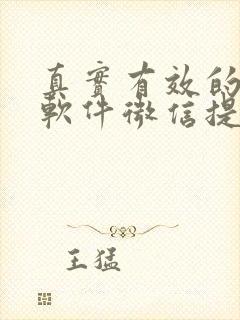 真實有效的
軟件微信提
王猛